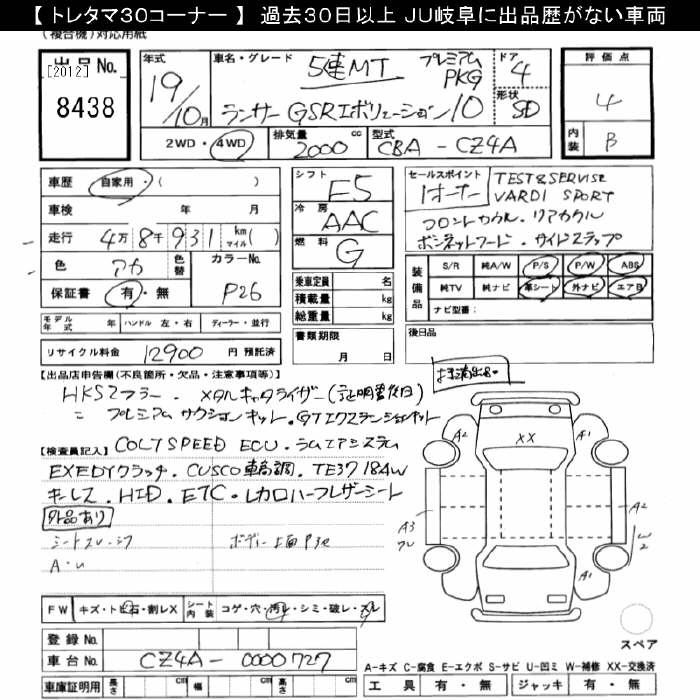 【 トレタマ30コーナー 】 過去30日以上 JU岐阜に出品歴がない車両
(複合機)対応用紙
出品No.
[2012]
8438
年式
19/10月
車名・グレード
5速MT プレミアムPKG
ランサー GSRエボリューション10
ドア
4
形状
SD
2WD・4WD
排気量 cc
2000
型式
CBA - CZ4A
評価点
4
内装
B
車歴 自家用・( )
車検 年 月
走行 4万8千931 km マイル ( )
色 アカ 色替
カラーNo.
P26
保証書 有・無
モデル年式 年 ハンドル 左・右 ディーラー・並行
リサイクル料金 12900 円 預託済
シフト
F5
冷房
AAC
燃料
G
乗車定員 名
積載量 kg
総重量 kg
書類期限
月 日
セールスポイント
1オーナー
VARDI SPORT
フロントカウル・リアカウル
ボンネットフード・サイドステップ
装備品
S/R 純A/W P/S P/W ABS
純TV 純ナビ 革シート 外ナビ エアB
ナビ型番:
後日品
【出品店申告欄(不良箇所・欠品・注意事項等)】
HKSマフラー・メタルキャタライザー(証明書後日)
プレミアムサクションキット・GTエクステンションキット
【検査員記入】 COLTSPEED ECU・ラムエアシステム
EXEDYクラッチ・CUSCO車高調・TE37 18AW
キーレス・HID・ETC・レカロハーフレザーシート
外品あり
A・U
XX
A2
A1
A3
A2
W2
A2
A1
FW キズ・トビ石・割レX シート内装 コゲ・穴・汚レ・シミ・破レ・スレ
登録No.
車台No. CZ4A - 0000727
車庫証明用 長さ cm 幅 cm 高さ cm
スペア
A-キズ C-腐食 E-エクボ S-サビ U-凹ミ W-補修 XX-交換済
工具 有・無 ジャッキ 有・無